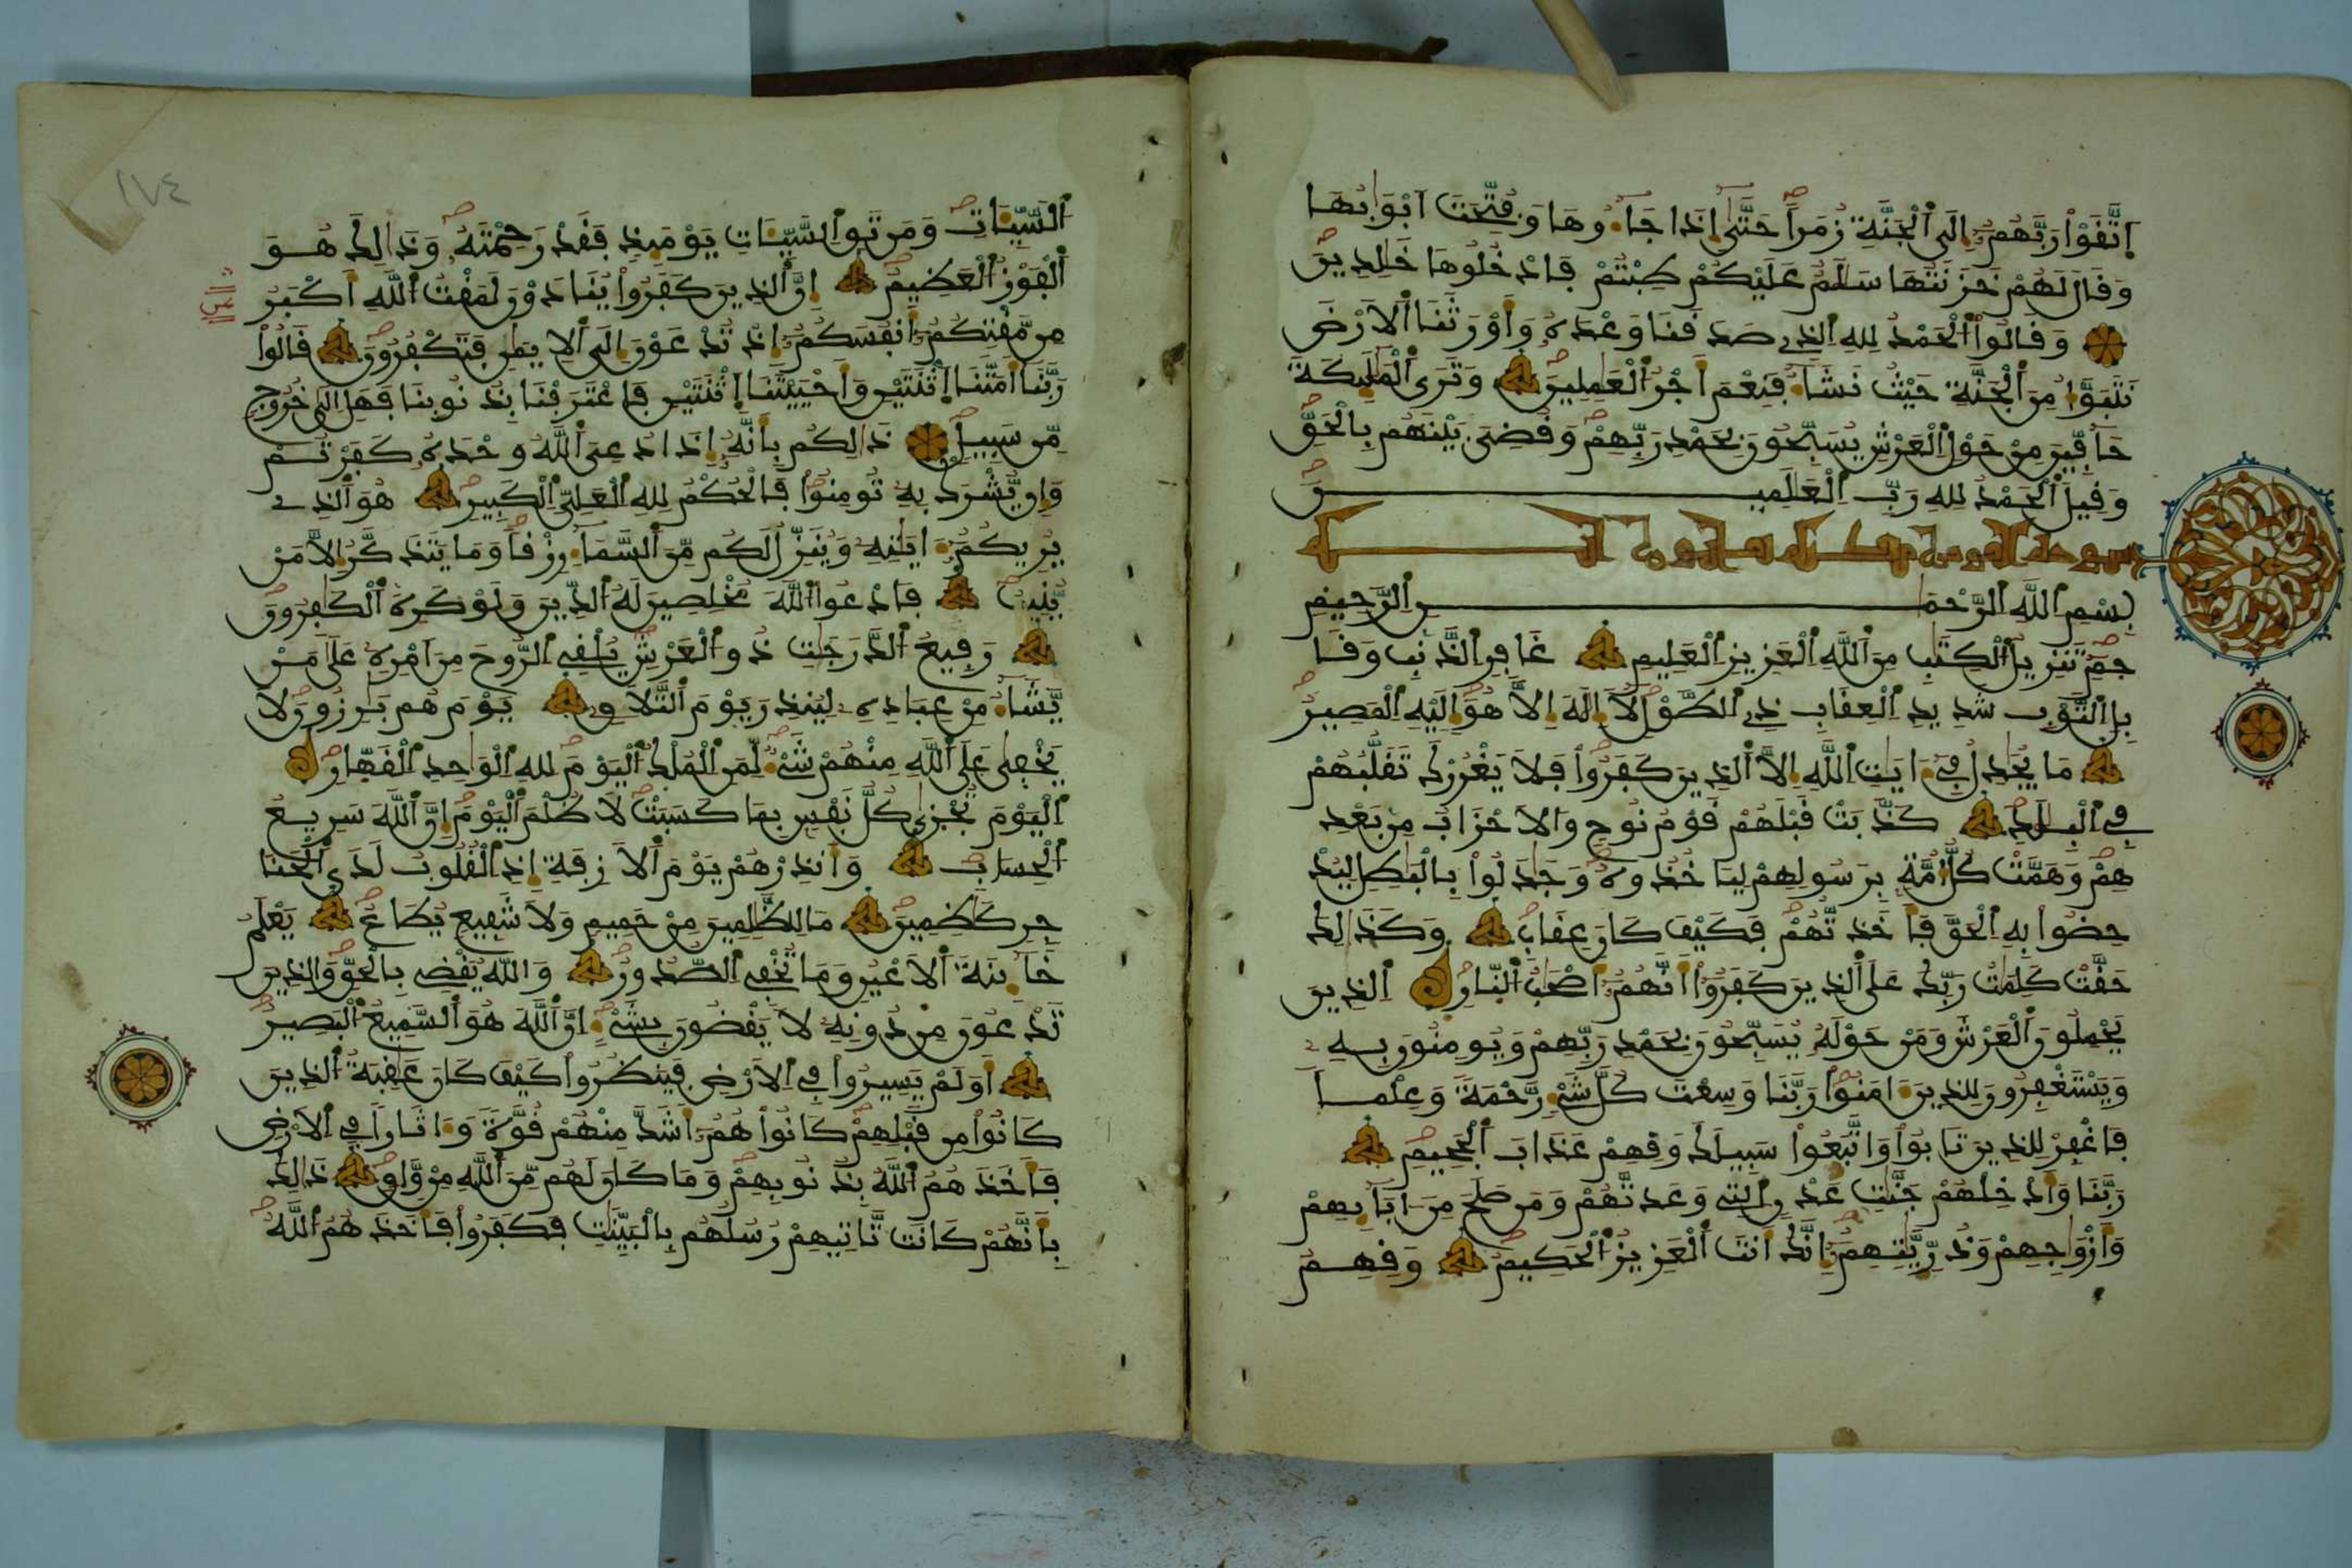 اِتَّقَوْاْ رَبَّهُمُۥٓ إِلَى اَ۬لْجَنَّةِ زُمَراًۖ حَتَّىٰٓ إِذَا جَآءُوهَا وَفُتِّحَتَ اَبْوَٰبُهَا
وَقَالَ لَهُمْ خَزَنَتُهَا سَلَٰمٌ عَلَيْكُمْ طِبْتُمْ فَادْخُلُوهَا خَٰلِدِينَۖ
وَقَالُواْ اُ۬لْحَمْدُ لِلهِ اِ۬لذِے صَدَقَنَا وَعْدَهُۥ وَأَوْرَثَنَا اَ۬لَارْضَ
نَتَبَوَّأُ مِنَ اَ۬لْجَنَّةِ حَيْثُ نَشَآءُۖ فَنِعْمَ أَجْرُ اُ۬لْعَٰمِلِينَۖ وَتَرَى اَ۬لْمَلَٰٓئِكَةَ
حَآفِّينَ مِنْ حَوْلِ اِ۬لْعَرْشِ يُسَبِّحُونَ بِحَمْدِ رَبِّهِمْۖ وَقُضِيَ بَيْنَهُم بِالْحَقِّۖ
وَقِيلَ اَ۬لْحَمْدُ لِلهِ رَبِّ اِ۬لْعَٰلَمِينَۖ
بِسْمِ اِ۬للَّهِ اِ۬لرَّحْمَٰنِ اِ۬لرَّحِيمِ
حَمِٓۖ تَنزِيلُ اُ۬لْكِتَٰبِ مِنَ اَ۬للَّهِ اِ۬لْعَزِيزِ اِ۬لْعَلِيمِ غَافِرِ اِ۬لذَّنۢبِ وَقَا
بِلِ اِ۬لتَّوْبِ شَدِيدِ اِ۬لْعِقَابِ ذِے اِ۬لطَّوْلِۖ لَآ إِلَٰهَ إِلَّا هُوَۖ إِلَيْهِ اِ۬لْمَصِيرُۖ
مَا يُجَٰدِلُ فِےٓ ءَايَٰتِ اِ۬للَّهِ إِلَّا اَ۬لذِينَ كَفَرُواْۖ فَلَا يَغْرُرْكَ تَقَلُّبُهُمْ
فِے اِ۬لْبِلَٰدِۖ كَذَّبَتْ قَبْلَهُمْ قَوْمُ نُوحٍ وَالَاحْزَابُ مِنۢ بَعْدِ
هِمْۖ وَهَمَّتْ كُلُّ أُمَّةِۢ بِرَسُولِهِمْ لِيَاخُذُوهُۖ وَجَٰدَلُواْ بِالْبَٰطِلِ لِيُدْ
حِضُواْ بِهِ اِ۬لْحَقَّ فَأَخَذتُّهُمْۖ فَكَيْفَ كَانَ عِقَابِۖ وَكَذَٰلِكَ
حَقَّتْ كَلِمَٰتُ رَبِّكَ عَلَى اَ۬لذِينَ كَفَرُوٓاْ أَنَّهُمُۥٓ أَصْحَٰبُ اُ۬لنّ۪ارِۖ اِ۬لذِينَ
يَحْمِلُونَ اَ۬لْعَرْشَ وَمَنْ حَوْلَهُۥ يُسَبِّحُونَ بِحَمْدِ رَبِّهِمْ وَيُومِنُونَ بِهِۦ
وَيَسْتَغْفِرُونَ لِلذِينَ ءَامَنُواْۖ رَبَّنَا وَسِعْتَ كُلَّ شَےْءٍ رَّحْمَةً وَعِلْماً
فَاغْفِرْ لِلذِينَ تَابُواْ وَاتَّبَعُواْ سَبِيلَكَ وَقِهِمْ عَذَابَ اَ۬لْجَحِيمِۖ
رَبَّنَا وَأَدْخِلْهُمْ جَنَّٰتِ عَدْنٍ اِ۬لتِے وَعَدتَّهُمْ وَمَن صَلَحَ مِنَ اٰبَآئِهِمْ
وَأَزْوَٰجِهِمْ وَذُرِّيَّٰتِهِمُۥٓۖ إِنَّكَ أَنتَ اَ۬لْعَزِيزُ اُ۬لْحَكِيمُۖ وَقِهِمُ
اُ۬لسَّيِّـَٔاتِۖ وَمَن تَقِ اِ۬لسَّيِّـَٔاتِ يَوْمَئِذٍ فَقَدْ رَحِمْتَهُۥۖ وَذَٰلِكَ هُوَ
اَ۬لْفَوْزُ اُ۬لْعَظِيمُۖ إِنَّ اَ۬لذِينَ كَفَرُواْ يُنَادَوْنَ لَمَقْتُ اُ۬للَّهِ أَكْبَرُ
مِن مَّقْتِكُمُۥٓ أَنفُسَكُمُۥٓ إِذْ تُدْعَوْنَ إِلَى اَ۬لِايمَٰنِ فَتَكْفُرُونَۖ قَالُواْ
رَبَّنَآ أَمَتَّنَا اَ۪ثْنَتَيْنِ وَأَحْيَيْتَنَا اَ۪ثْنَتَيْنِ فَاعْتَرَفْنَا بِذُنُوبِنَا فَهَلِ اِلَىٰ خُرُوجٍ
مِّن سَبِيلٍۖ ذَٰلِكُم بِأَنَّهُۥٓ إِذَا دُعِيَ اَ۬للَّهُ وَحْدَهُۥ كَفَرْتُمْ
وَإِنْ يُّشْرَكْ بِهِۦ تُومِنُواْۖ فَالْحُكْمُ لِلهِ اِ۬لْعَلِيِّ اِ۬لْكَبِيرِۖ هُوَ اَ۬لذِے
يُرِيكُمُۥٓ ءَايَٰتِهِۦ وَيُنَزِّلُ لَكُم مِّنَ اَ۬لسَّمَآءِ رِزْقاًۖ وَمَا يَتَذَكَّرُ إِلَّا مَنْ
يُّنِيبُۖ فَادْعُواْ اُ۬للَّهَ مُخْلِصِينَ لَهُ اُ۬لدِّينَ وَلَوْ كَرِهَ اَ۬لْكَٰفِرُونَۖ
رَفِيعُ اُ۬لدَّرَجَٰتِ ذُو اُ۬لْعَرْشِۖ يُلْقِے اِ۬لرُّوحَ مِنَ اَمْرِهِۦ عَلَىٰ مَنْ
يَّشَآءُ مِنْ عِبَادِهِۦ لِيُنذِرَ يَوْمَ اَ۬لتَّلَاقِۦ يَوْمَ هُم بَٰرِزُونَۖ لَا
يَخْفَىٰ عَلَى اَ۬للَّهِ مِنْهُمْ شَےْءٌۖ لِّمَنِ اِ۬لْمُلْكُ اُ۬لْيَوْمَۖ لِلهِ اِ۬لْوَٰحِدِ اِ۬لْقَهّ۪ارِۖ
اِ۬لْيَوْمَ تُجْزَىٰ كُلُّ نَفْسِۢ بِمَا كَسَبَتْۖ لَا ظُلْمَ اَ۬لْيَوْمَۖ إِنَّ اَ۬للَّهَ سَرِيعُ
اُ۬لْحِسَابِۖ وَأَنذِرْهُمْ يَوْمَ اَ۬لَازِفَةِ إِذِ اِ۬لْقُلُوبُ لَدَى اَ۬لْحَنَا
جِرِ كَٰظِمِينَۖ مَا لِلظَّٰلِمِينَ مِنْ حَمِيمٍ وَلَا شَفِيعٍ يُطَاعُۖ يَعْلَمُ
خَآئِنَةَ اَ۬لَاعْيُنِ وَمَا تُخْفِے اِ۬لصُّدُورُۖ وَاللَّهُ يَقْضِے بِالْحَقِّۖ وَالذِينَ
تَدْعُونَ مِن دُونِهِۦ لَا يَقْضُونَ بِشَےْءٍۖ اِنَّ اَ۬للَّهَ هُوَ اَ۬لسَّمِيعُ اُ۬لْبَصِيرُۖ
أَوَلَمْ يَسِيرُواْ فِے اِ۬لَارْضِ فَيَنظُرُواْ كَيْفَ كَانَ عَٰقِبَةُ اُ۬لذِينَ
كَانُواْ مِن قَبْلِهِمْۖ كَانُواْ هُمُۥٓ أَشَدَّ مِنْهُمْ قُوَّةً وَءَاثَاراً فِے اِ۬لَارْضِ
فَأَخَذَهُمُ اُ۬للَّهُ بِذُنُوبِهِمْۖ وَمَا كَانَ لَهُم مِّنَ اَ۬للَّهِ مِنْ وَّاقٍۖ ذَٰلِكَ
بِأَنَّهُمْ كَانَت تَّاتِيهِمْ رُسُلُهُم بِالْبَيِّنَٰتِ فَكَفَرُواْ فَأَخَذَهُمُ اُ۬للَّهُۖ